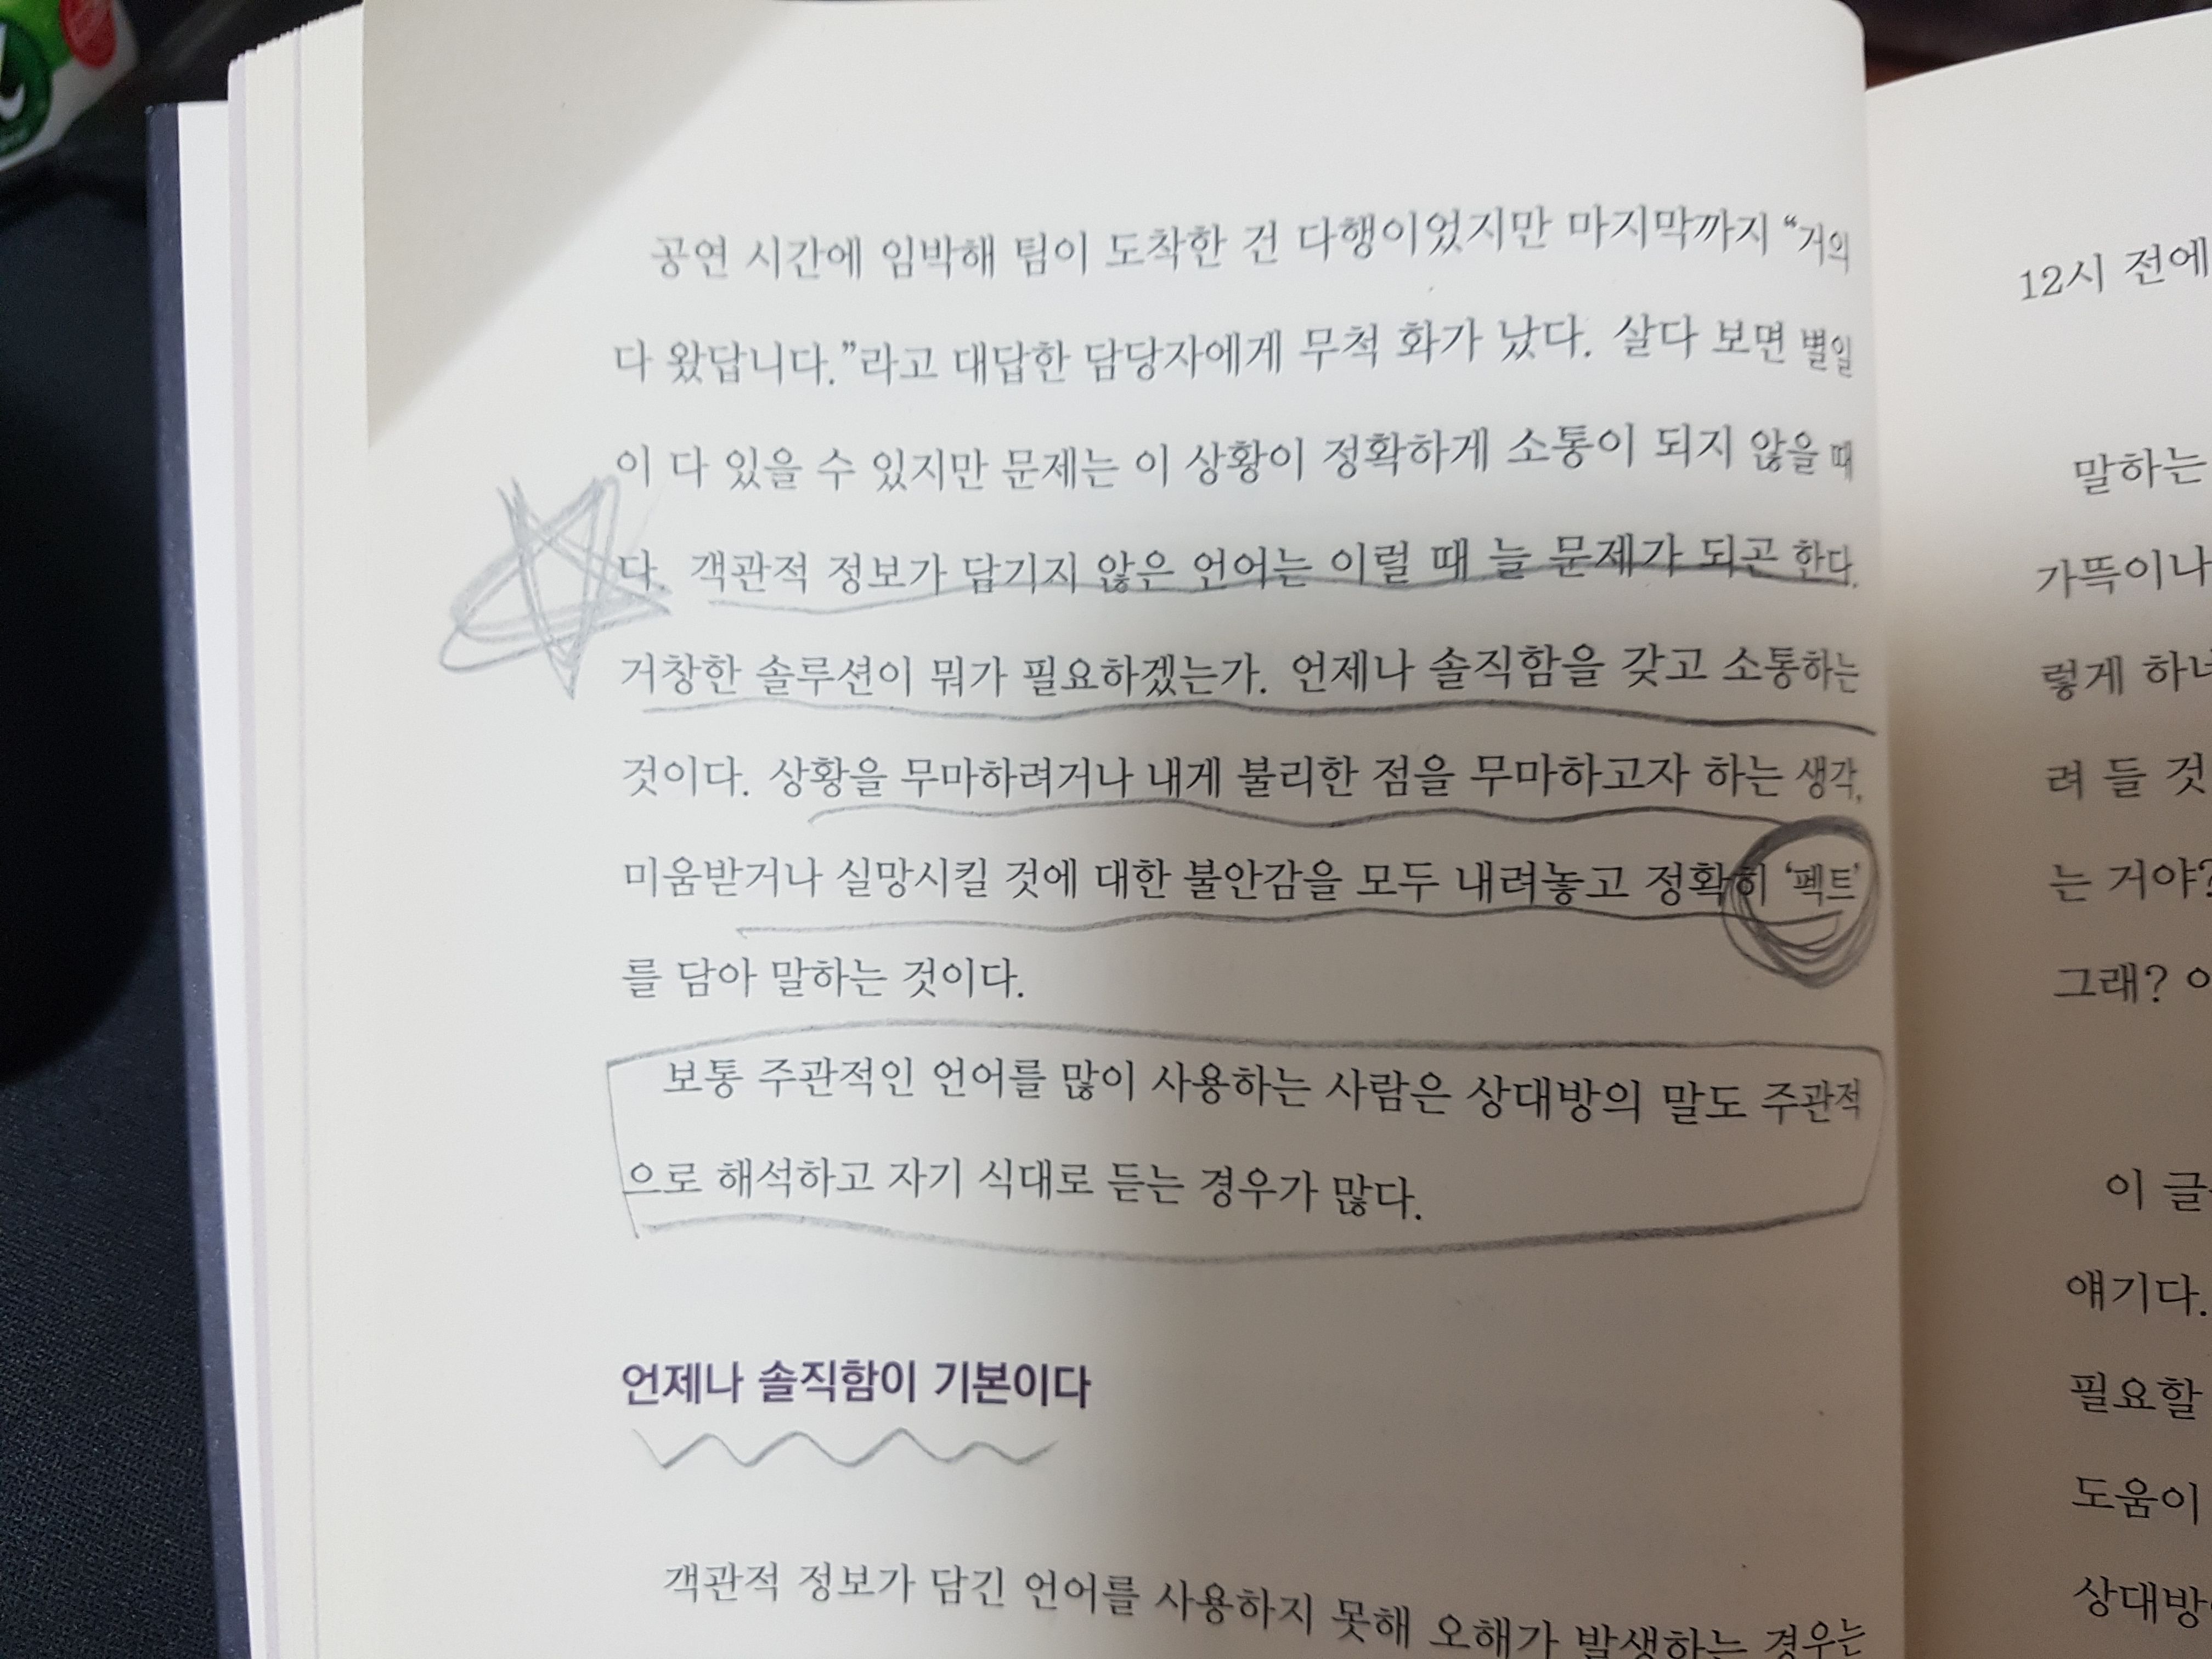 공연 시간에 임박해 팀이 도착한 건 다행이었지만 마지막까지 “거의
다 왔답니다.”라고 대답한 담당자에게 무척 화가 났다. 살다 보면 별일
이 다 있을 수 있지만 문제는 이 상황이 정확하게 소통이 되지 않을 때
다. 객관적 정보가 담기지 않은 언어는 이럴 때 늘 문제가 되곤 한다.
거창한 솔루션이 뭐가 필요하겠는가. 언제나 솔직함을 갖고 소통하는
것이다. 상황을 무마하려거나 내게 불리한 점을 무마하고자 하는 생각,
미움받거나 실망시킬 것에 대한 불안감을 모두 내려놓고 정확히 ‘펙트’
를 담아 말하는 것이다.
보통 주관적인 언어를 많이 사용하는 사람은 상대방의 말도 주관적
으로 해석하고 자기 식대로 듣는 경우가 많다.
언제나 솔직함이 기본이다
객관적 정보가 담긴 언어를 사용하지 못해 오해가 발생하는 경우는
12시 전에
말하는
가뜩이나
렇게 하
려 들 것
는 거야?
그래?
이 글
얘기다.
필요할
도움이
상대방